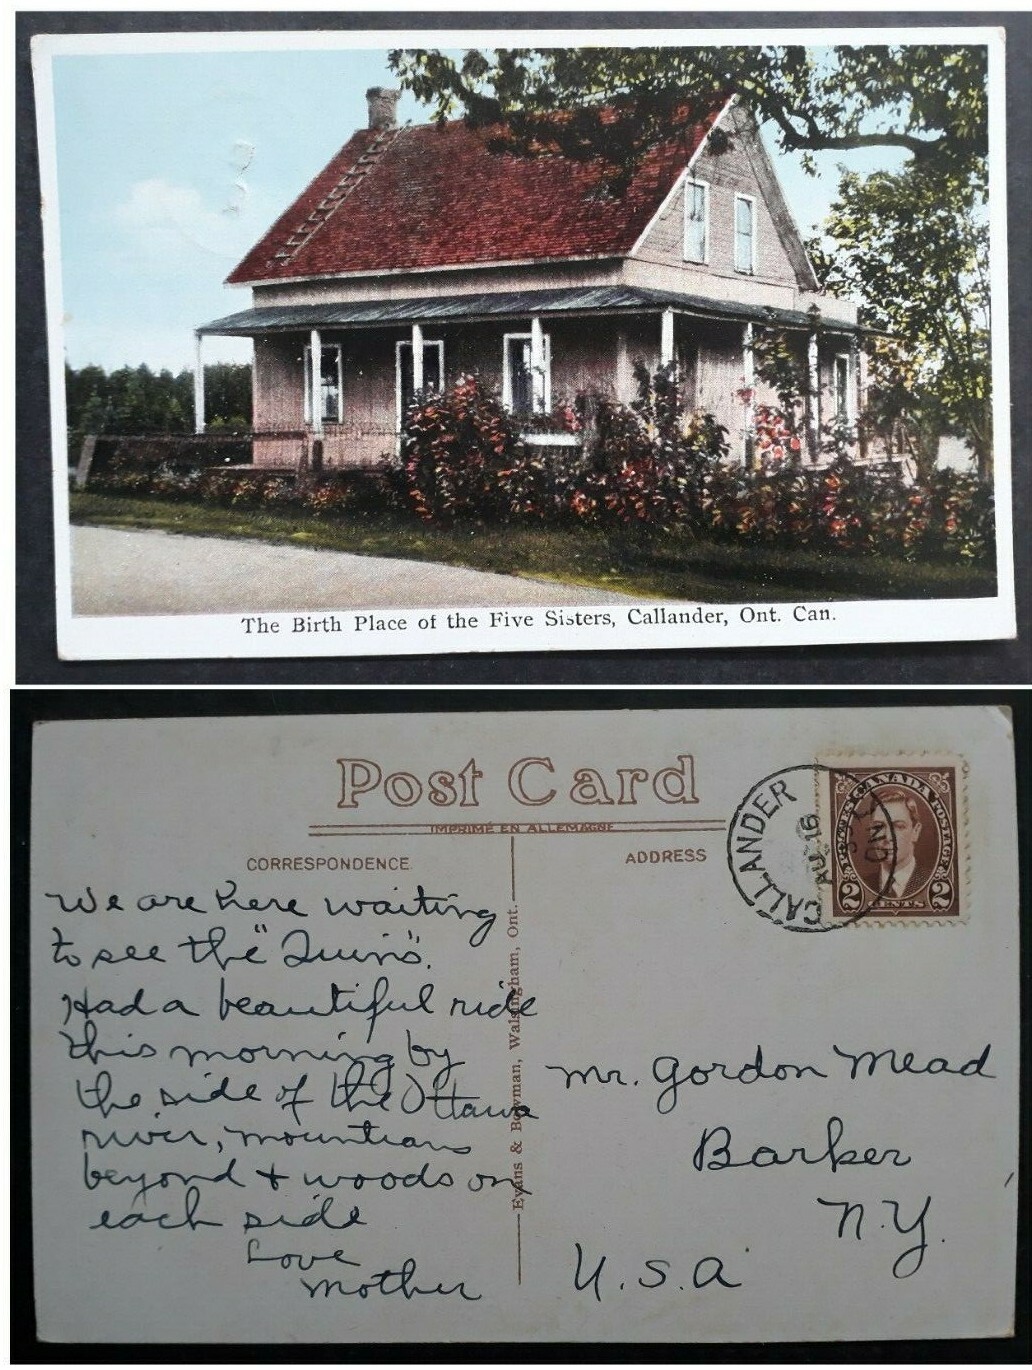 The Birth Place of the Five Sisters, Callander, Ont. Can.
Post Card
IMPRIMÉ EN ALLEMAGNE
CORRESPONDENCE
ADDRESS
CALLANDER
AU 16
ONT
CANADA
POSTES POSTAGE
2 CENTS 2
We are here waiting
to see the "Quins".
Had a beautiful ride
this morning by
the side of the Ottawa
river, mountians
beyond + woods on
each side
Love
Mother
Evans & Bowman, Walsingham, Ont.
Mr. Gordon Mead
Barker
N.Y.
U.S.A